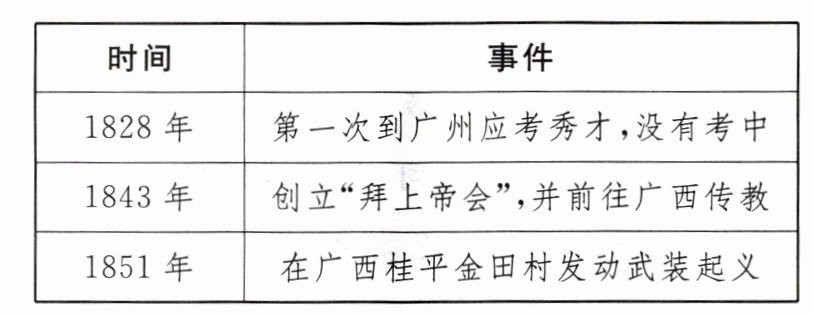 时间 事件
1828 年 第一次到广州应考秀才,没有考中
1843 年 创立“拜上帝会”,并前往广西传教
1851 年 在广西桂平金田村发动武装起义